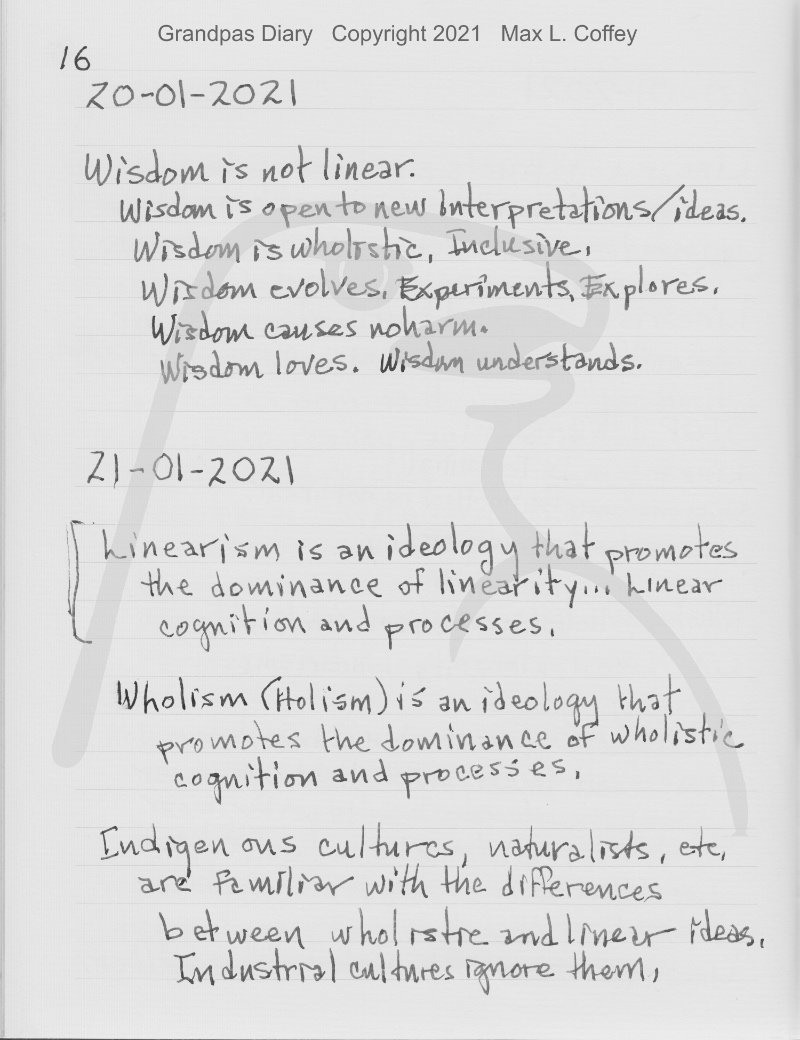 Grandpas Diary Copyright 2021 Max L. Coffey
16
20-01-2021
Wisdom is not linear.
Wisdom is open to new Interpretations/ideas.
Wisdom is wholistic, Inclusive.
Wisdom evolves, Experiments, Explores.
Wisdom causes no harm.
Wisdom loves. Wisdom understands.
21-01-2021
Linearism is an ideology that promotes
the dominance of linearity... Linear
cognition and processes.
Wholism (Holism) is an ideology that
promotes the dominance of wholistic
cognition and processes.
Indigenous cultures, naturalists, etc,
are familiar with the differences
between wholistic and linear ideas.
Industrial cultures ignore them.